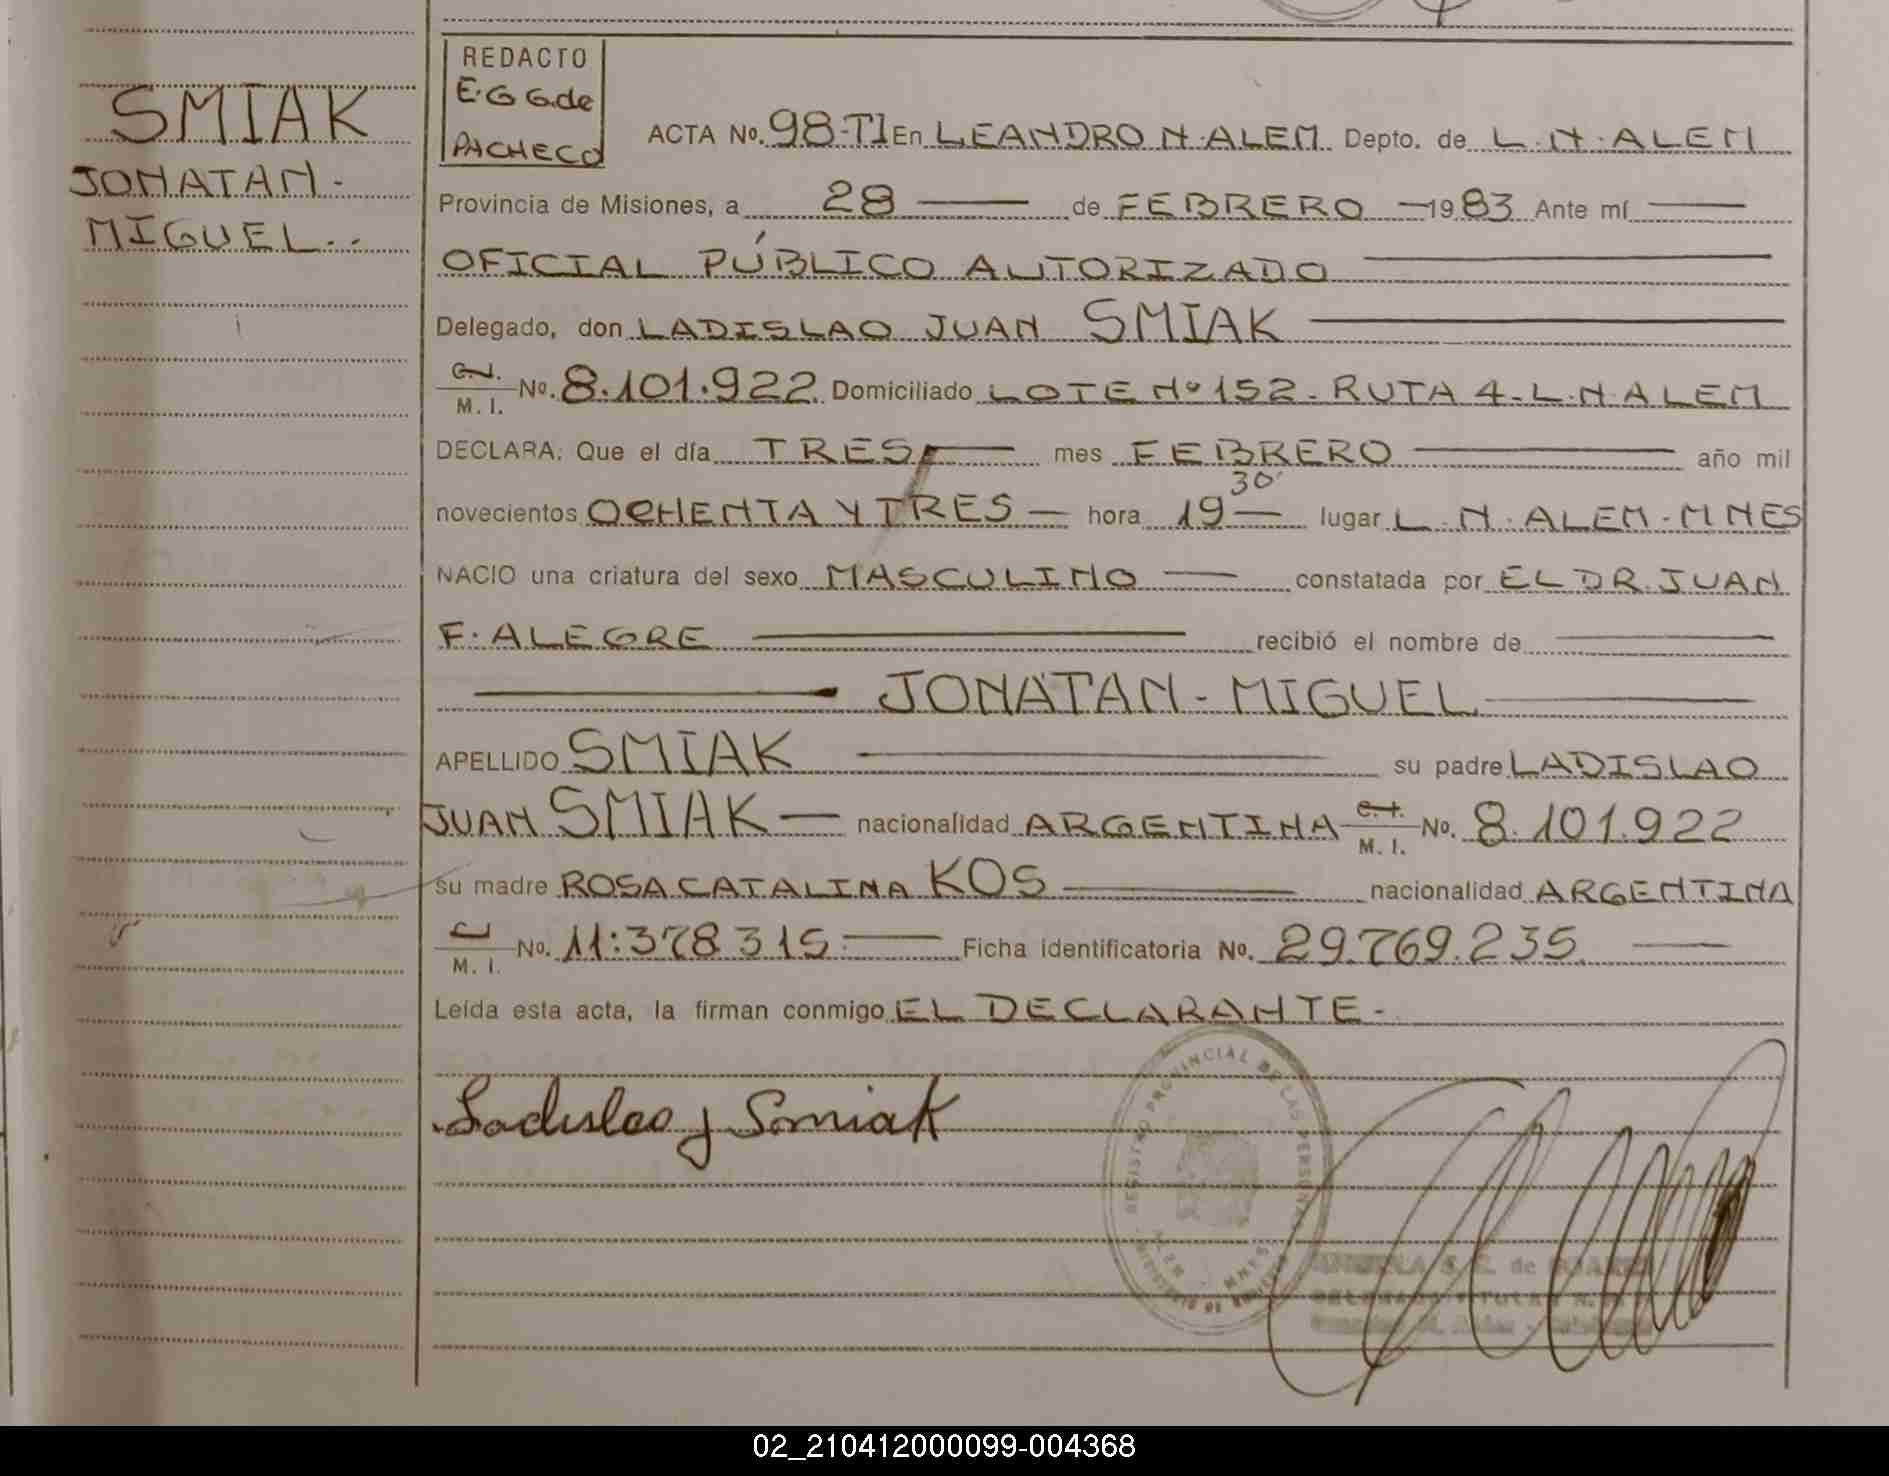 SMIAK
JONATAN-
MIGUEL..
REDACTO
E.G G.de
PACHECO
ACTA No. 98-TI En LEANDRO N. ALEM Depto. de L.N.ALEM
Provincia de Misiones, a 28 de FEBRERO 1983 Ante mí
OFICIAL PÚBLICO AUTORIZADO
Delegado, don LADISLAO JUAN SMIAK
M. I. No. 8.101.922 Domiciliado LOTE Nº 152-RUTA 4-L.N.ALEM
DECLARA: Que el día TRES mes FEBRERO año mil
novecientos OCHENTA Y TRES hora 19 30' lugar L.N.ALEM-MNES
NACIO una criatura del sexo MASCULINO constatada por EL DR. JUAN
F. ALEGRE recibió el nombre de
JONATAN-MIGUEL
APELLIDO SMIAK su padre LADISLAO
JUAN SMIAK nacionalidad ARGENTINA M. I. No. 8.101.922
su madre ROSA CATALINA KOS nacionalidad ARGENTINA
M. I. No. 11.378.315 Ficha identificatoria No. 29.769.235
Leída esta acta, la firman conmigo EL DECLARANTE-
Ladislao J Smiak
REGISTRO PROVINCIAL DE LAS PERSONAS
02_210412000099-004368